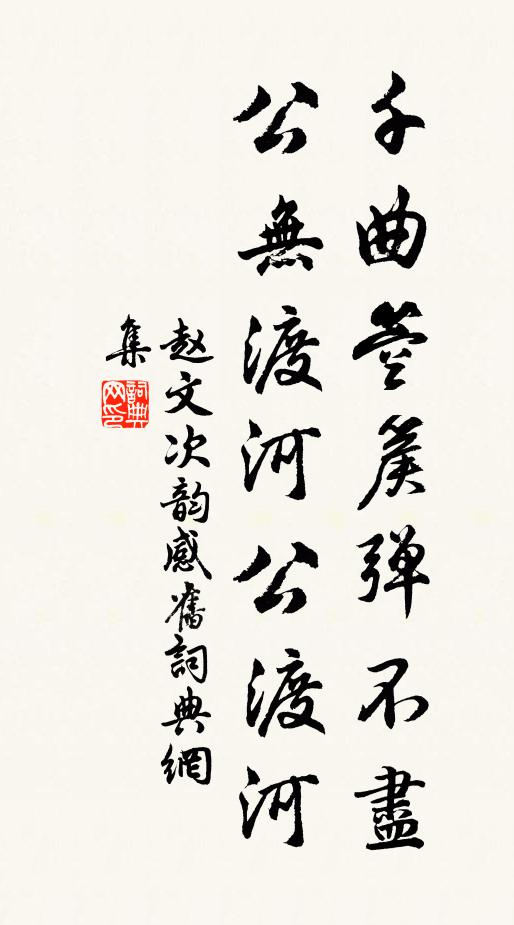 千曲箜篌弹不盡
公無渡河公渡河
赵文次韵感舊詞典網
集
詞典网印